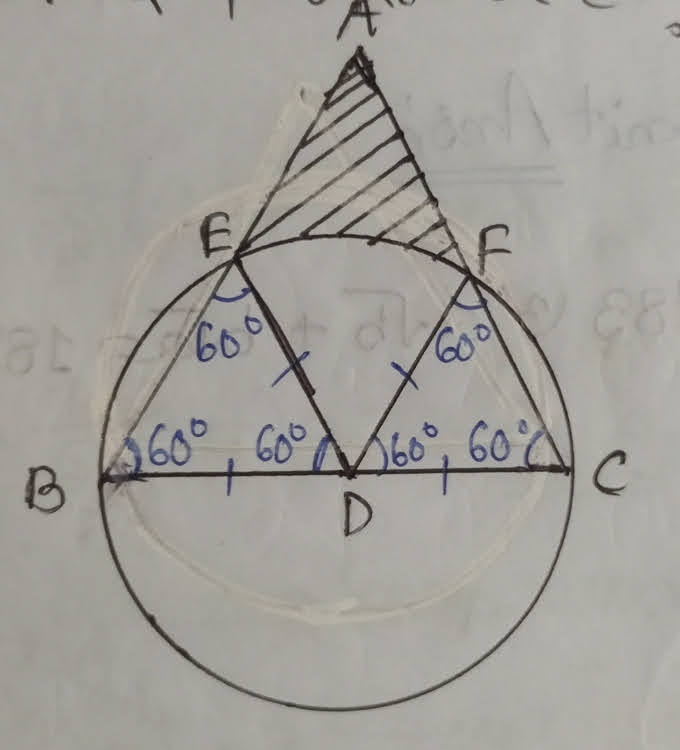 A
E F
60° 60°
60° 60° 60° 60°
B C
D